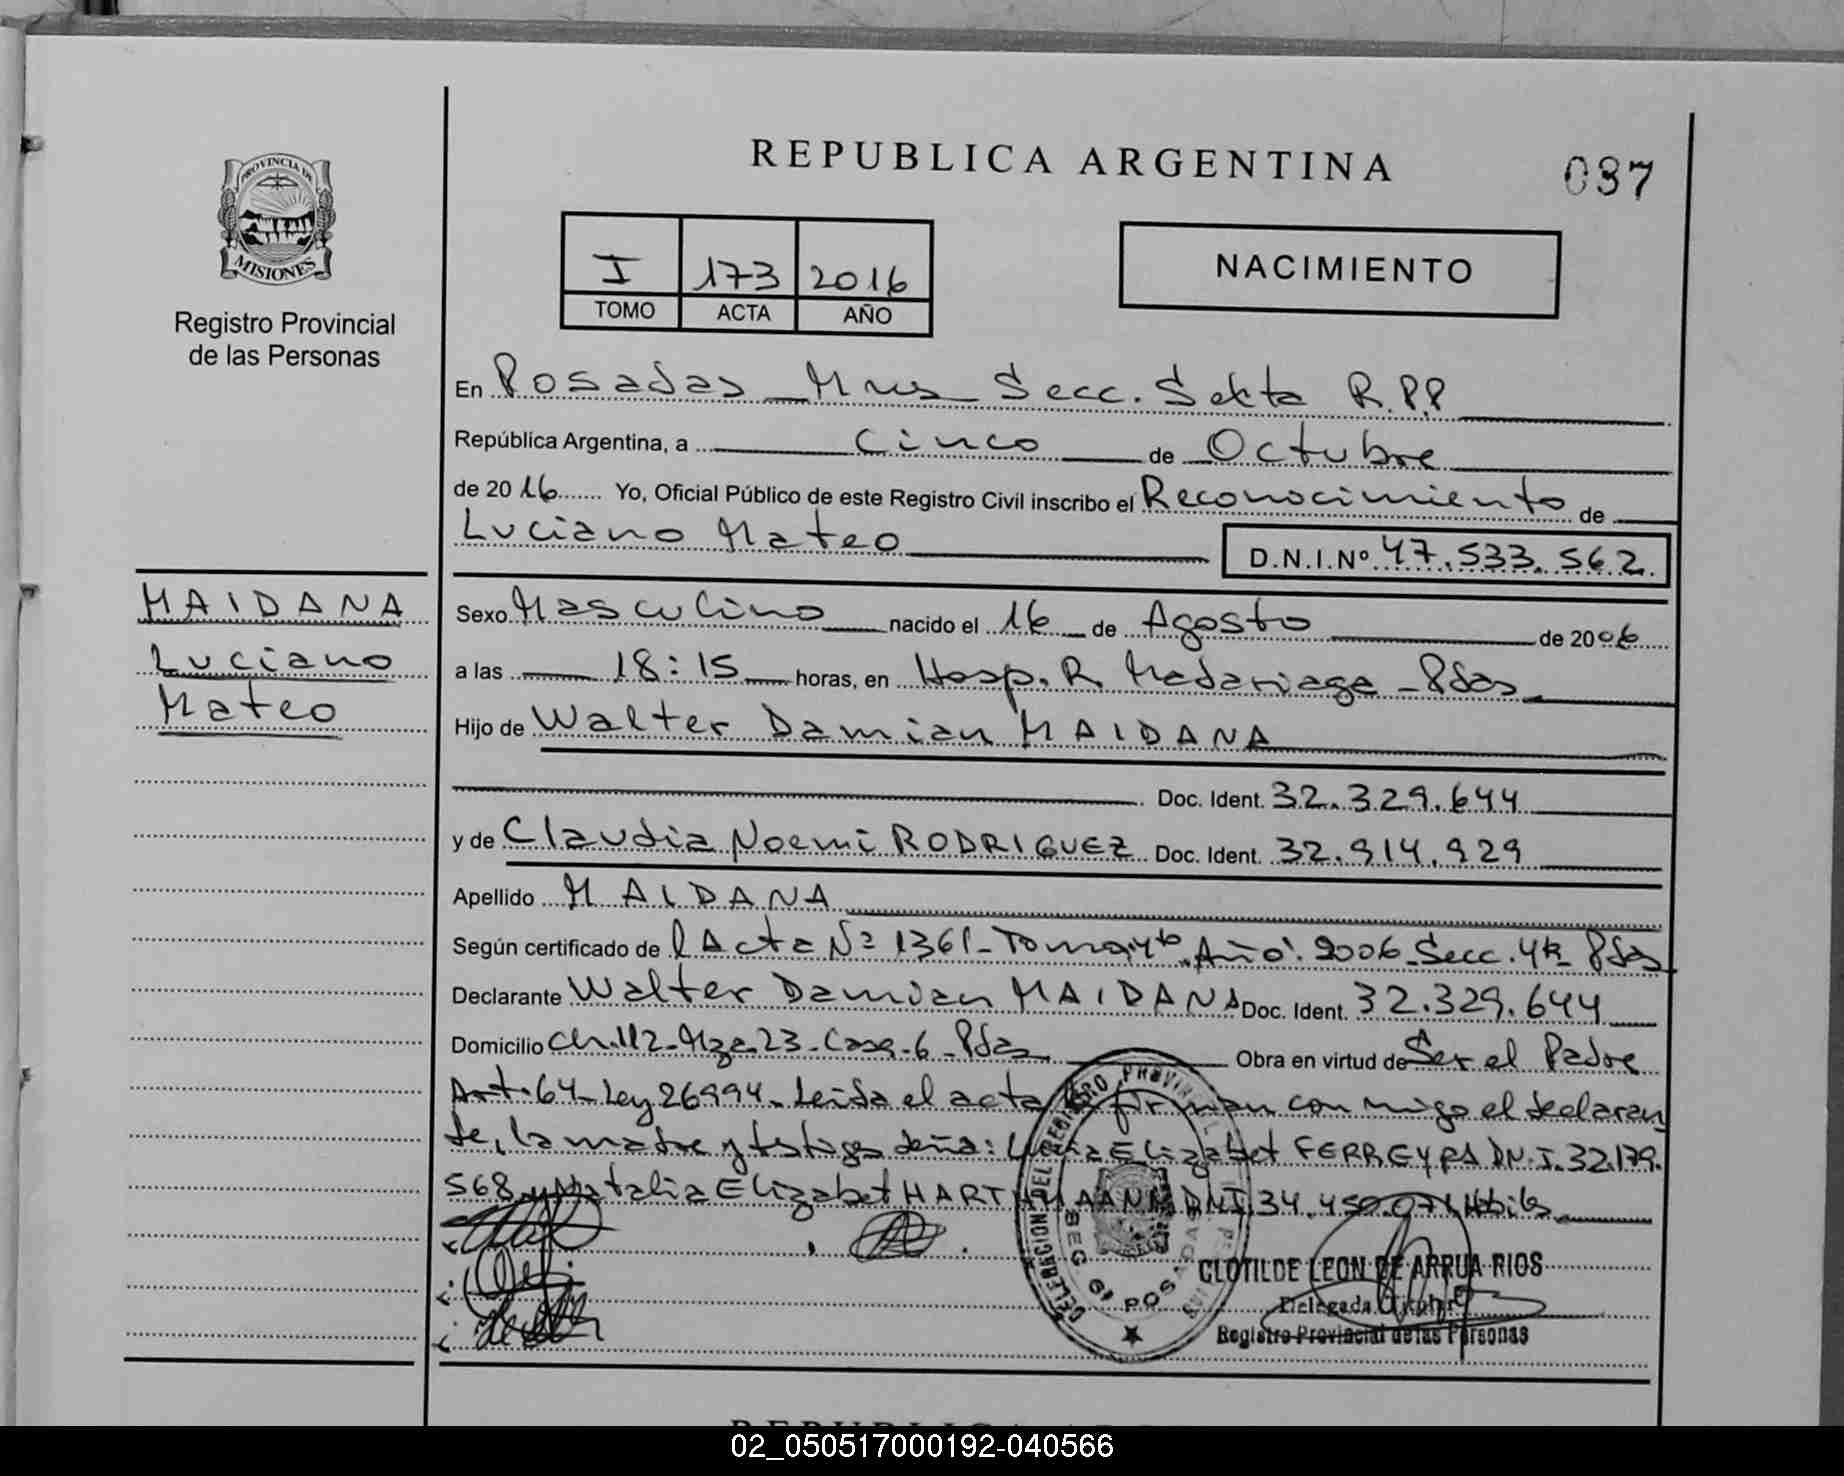 REPUBLICA ARGENTINA
037
PROVINCIA DE
MISIONES
Registro Provincial
de las Personas
I 173 2016
TOMO ACTA AÑO
NACIMIENTO
En Posadas Mnes Secc. Sexta R.P.P
República Argentina, a cinco de Octubre
de 2016 Yo, Oficial Público de este Registro Civil inscribo el Reconocimiento de
Luciano Mateo D.N.I.Nº 47.533.562
MAIDANA
Luciano
Mateo
Sexo Masculino nacido el 16 de Agosto de 2006
a las 18:15 horas, en Hosp. R. Madariaga - Pdas
Hijo de Walter Damian MAIDANA
Doc. Ident. 32.329.644
y de Claudia Noemi RODRIGUEZ Doc. Ident. 32.914.929
Apellido MAIDANA
Según certificado de l Acta Nº 1361 - Tomo 4to Año: 2006 Secc. 4ta Pdas
Declarante Walter Damian MAIDANA Doc. Ident. 32.329.644
Domicilio Ch. 112 - Mza. 23 - Casa - 6 - Pdas Obra en virtud de Ser el Padre
Art. 64 - Ley 26994 - Leida el acta la firman con migo el declaran
te, la madre y testigos Elizabet FERREYRA DN.I. 32.179.
568 y Natalia Elizabet HARTHMAANN DNI 34.450.071 Hbiles
CELEBRACION DEL REGISTRO PROVINCIAL
SEC 6ª POSADAS
CLOTILDE LEON DE ARRUA RIOS
Delegada Titular
Registro Provincial de las Personas
02_050517000192-040566